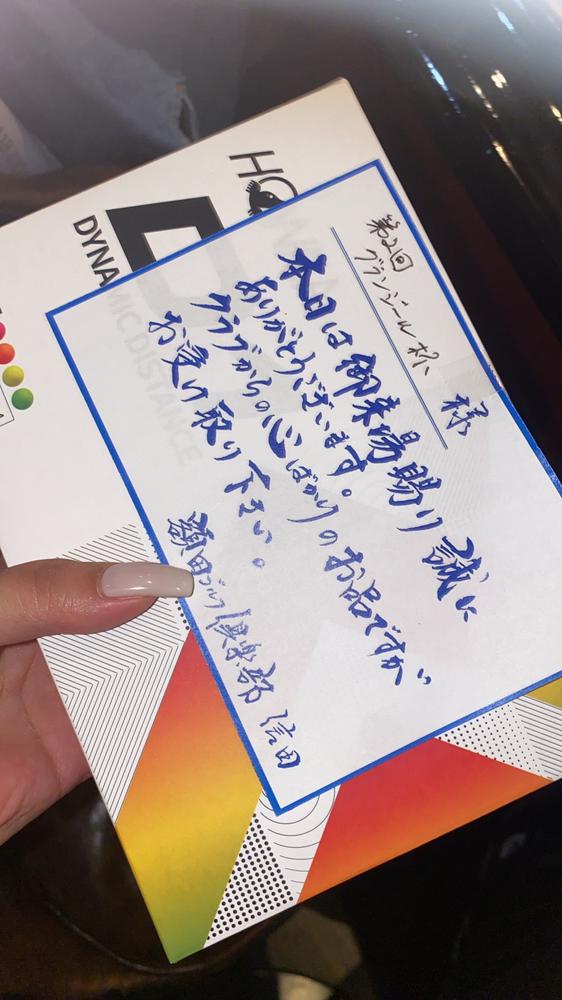 第2回
グランジール杯
様
本日は御来場賜り誠に
ありがとうございます。
クラブからの心ばかりのお品ですが
お受け取り下さい。
額田ゴルフ倶楽部 信田
DYNAMIC DISTANCE